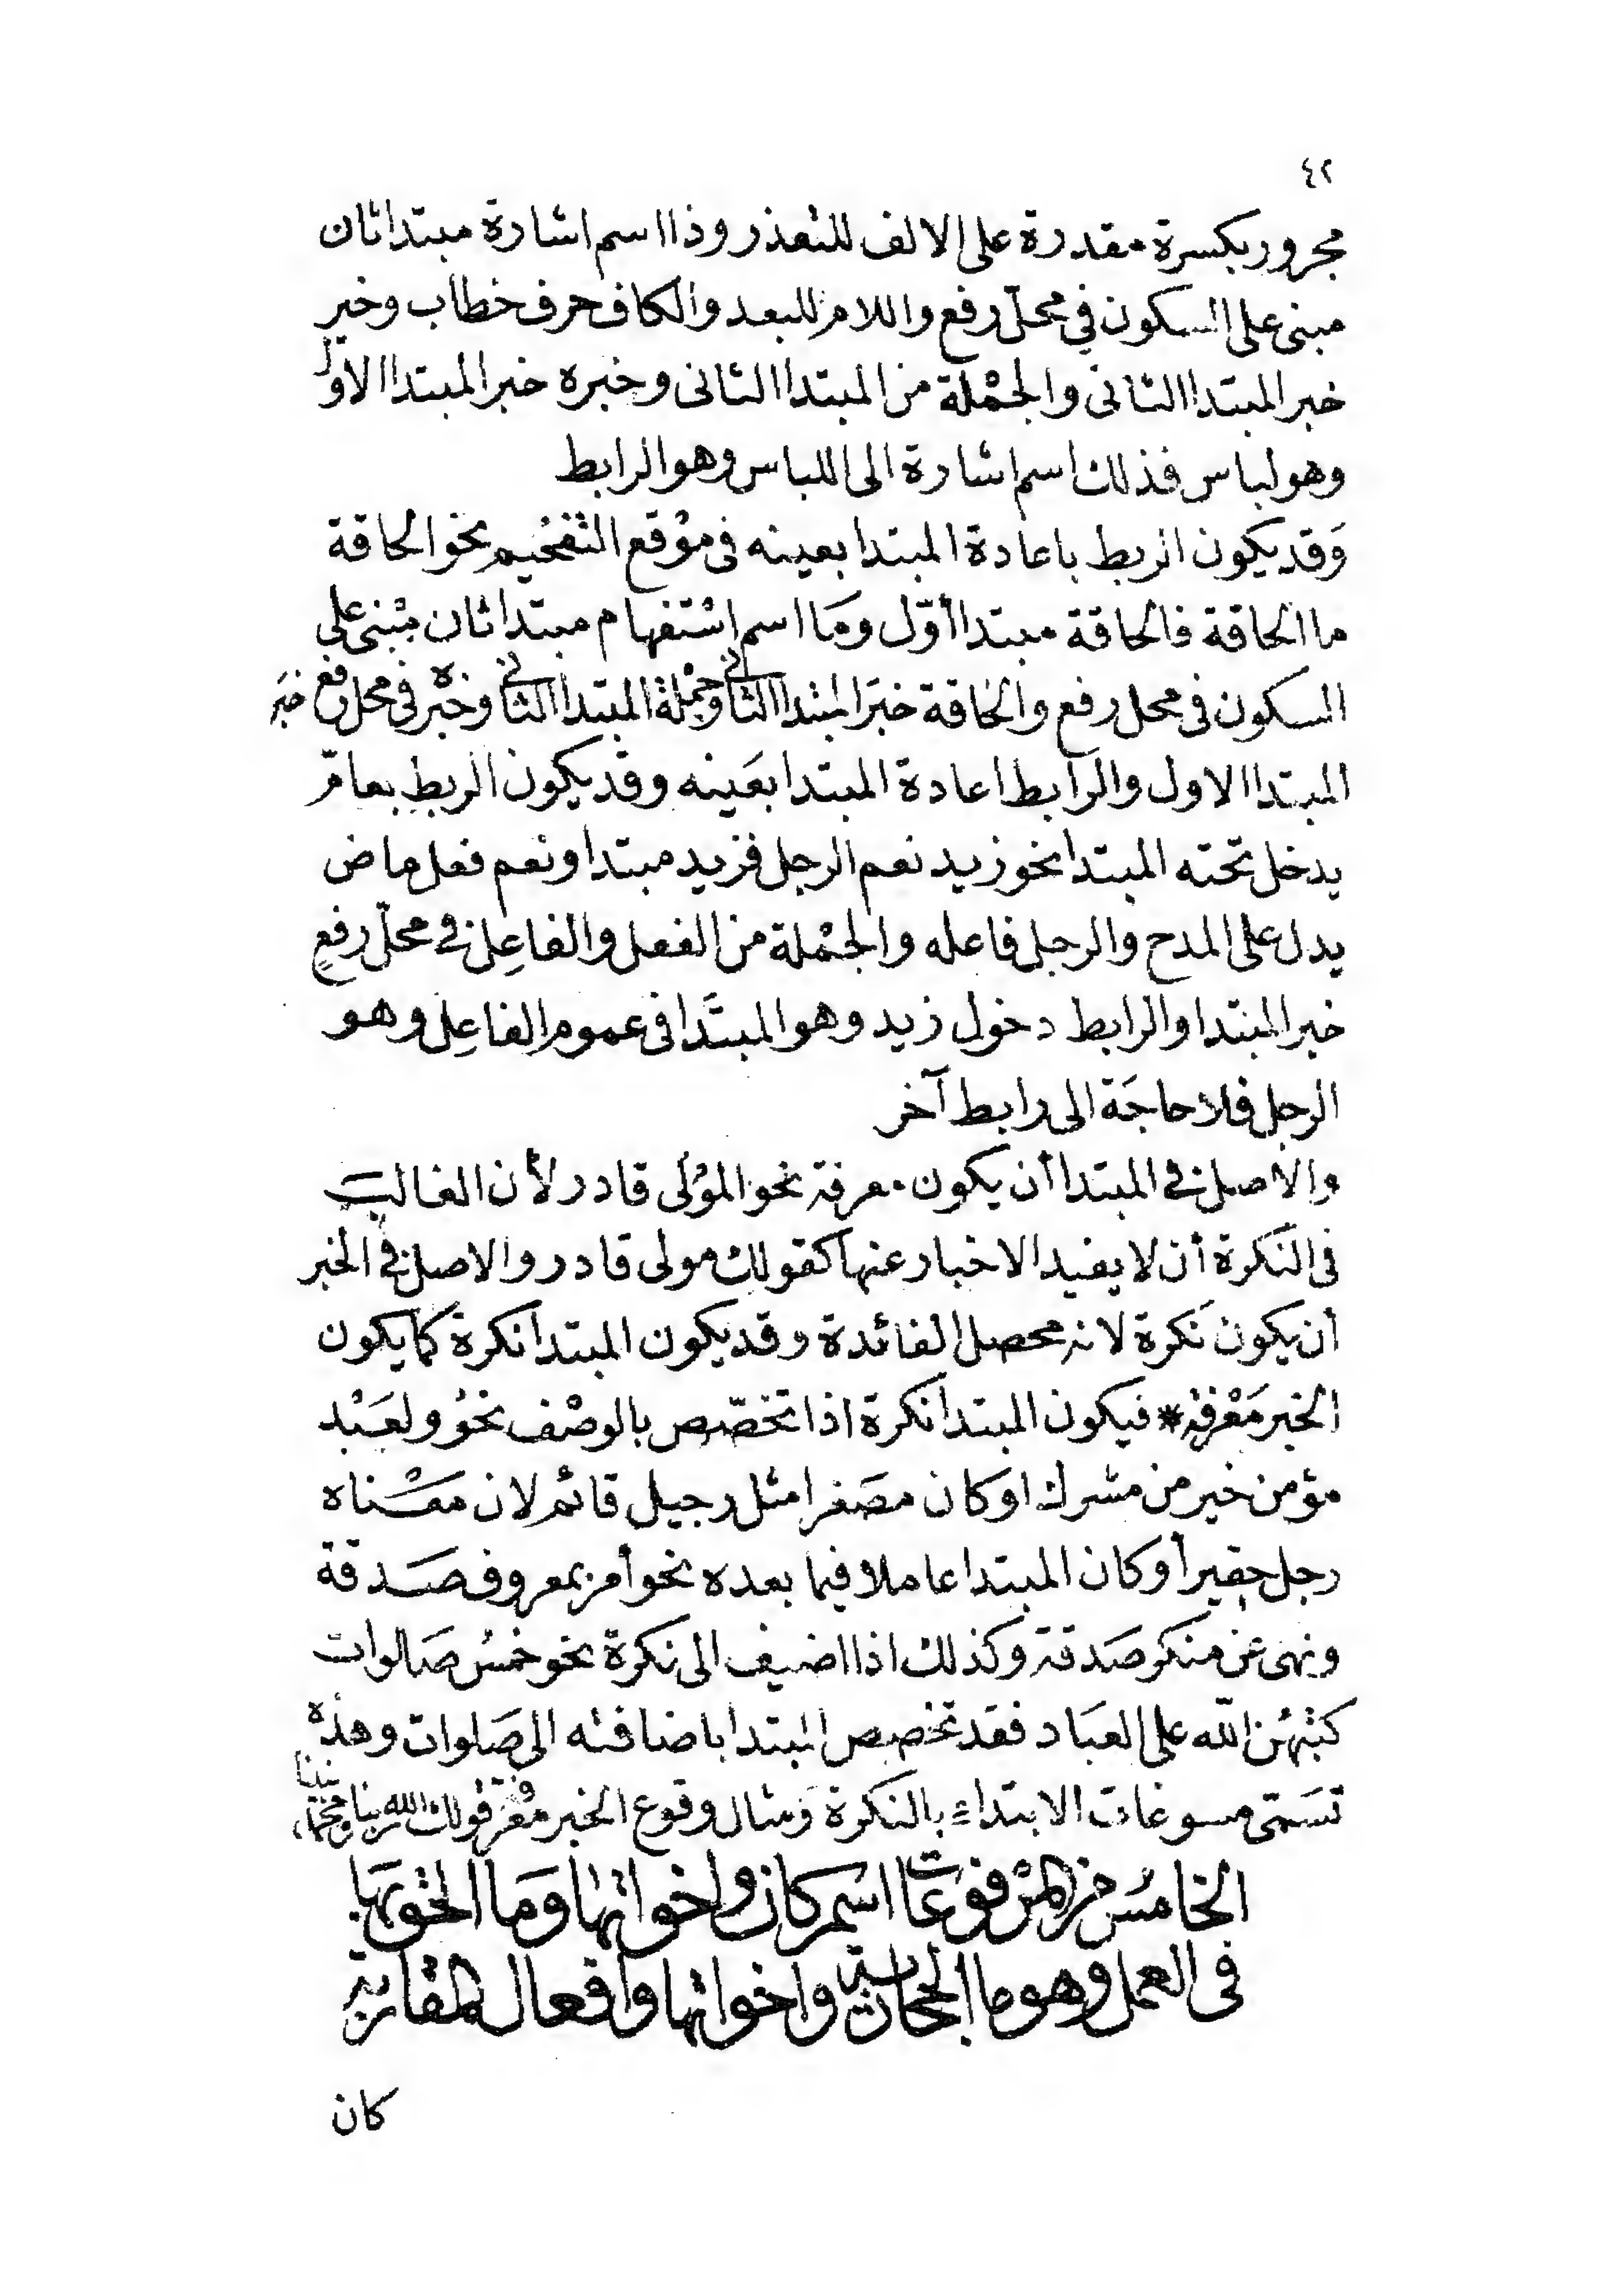 ٤٢
مجرور بكسرة مقدرة على الالف للتعذر وذا اسم اشارة مبتدا ثان
مبنى على السكون في محلّ رفع واللام للبعد والكاف حرف خطاب وخير
خبر المبتدا الثانى والجمْلة من المبتدا الثانى وخبره خبر المبتدا الاوّل
وهو لباس فذلك اسم اشارة الى اللباس وهو الرابط
وَقد يكون الربط باعادة المبتدا بعينه فى موْقع التفخيم نحو الحاقة
ما الحاقة فالحاقة مبتدا أوّل وَمَا اسم اسْتفهام مبتدا ثان مبْنى على
السكون فى محل رفع والحاقة خبَر المبتدا الثانى وجمْلة المبتدا الثانى وخبْره فى محل رفع خبَر
المبتدا الاول والرابط اعادة المبتدا بعَينه وقد يكون الربط بعامّ
يدخل تحته المبتدا نحو زيد نعم الرجل فزيد مبتدا ونعم فعل ماض
يدل على المدح والرجل فاعله والجمْلة من الفعل والفاعِل في محلّ رفعٍ
خبر المبتدا والرابط دخول زيد وهو المبتَدا فى عموم الفاعِل وهو
الرجل فلا حاجَة الى رابط آخر
والاصل في المبتدا أن يكون معرفة نحو الموْلى قادر لأن الغالب
فى النكرة أن لا يفيد الاخبار عنها كقولك مولى قادر والاصل في الخبر
أن يكون نَكرة لانه محصل الفائدة وقد يكون المبتدا نكرة كما يكون
الخبر مَعْرفة * فيكون المبتدا نكرة اذا تخصّص بالوصْف نحوُ ولعَبْد
مؤمن خير من مشرك او كان مصَغرا مثل رجيل قائم لان معْناه
رجل حقير أو كان المبتدا عاملا فيما بعده نحو أمر بمعروف صَدقة
ونهى عن منكر صَدقة وكذلك اذا اضيف الى نكرة نحو خمسُ صَلوات
كتبهُن الله على العبَاد فقد تخصص المبتدا باضافته الى صَلوات وهذه
تسَمّى مسوغات الابتداء بالنكرة وَمثال وقوع الخبر معْرفة قولك الله ربنا ومحمّد نبينا
الخامسُ من المرْفوعَات اسْم كان واخواتها وَمَا الحق بهَا
فى العمل وهو ما الحجازية واخواتها وافعال المقاربة
كان